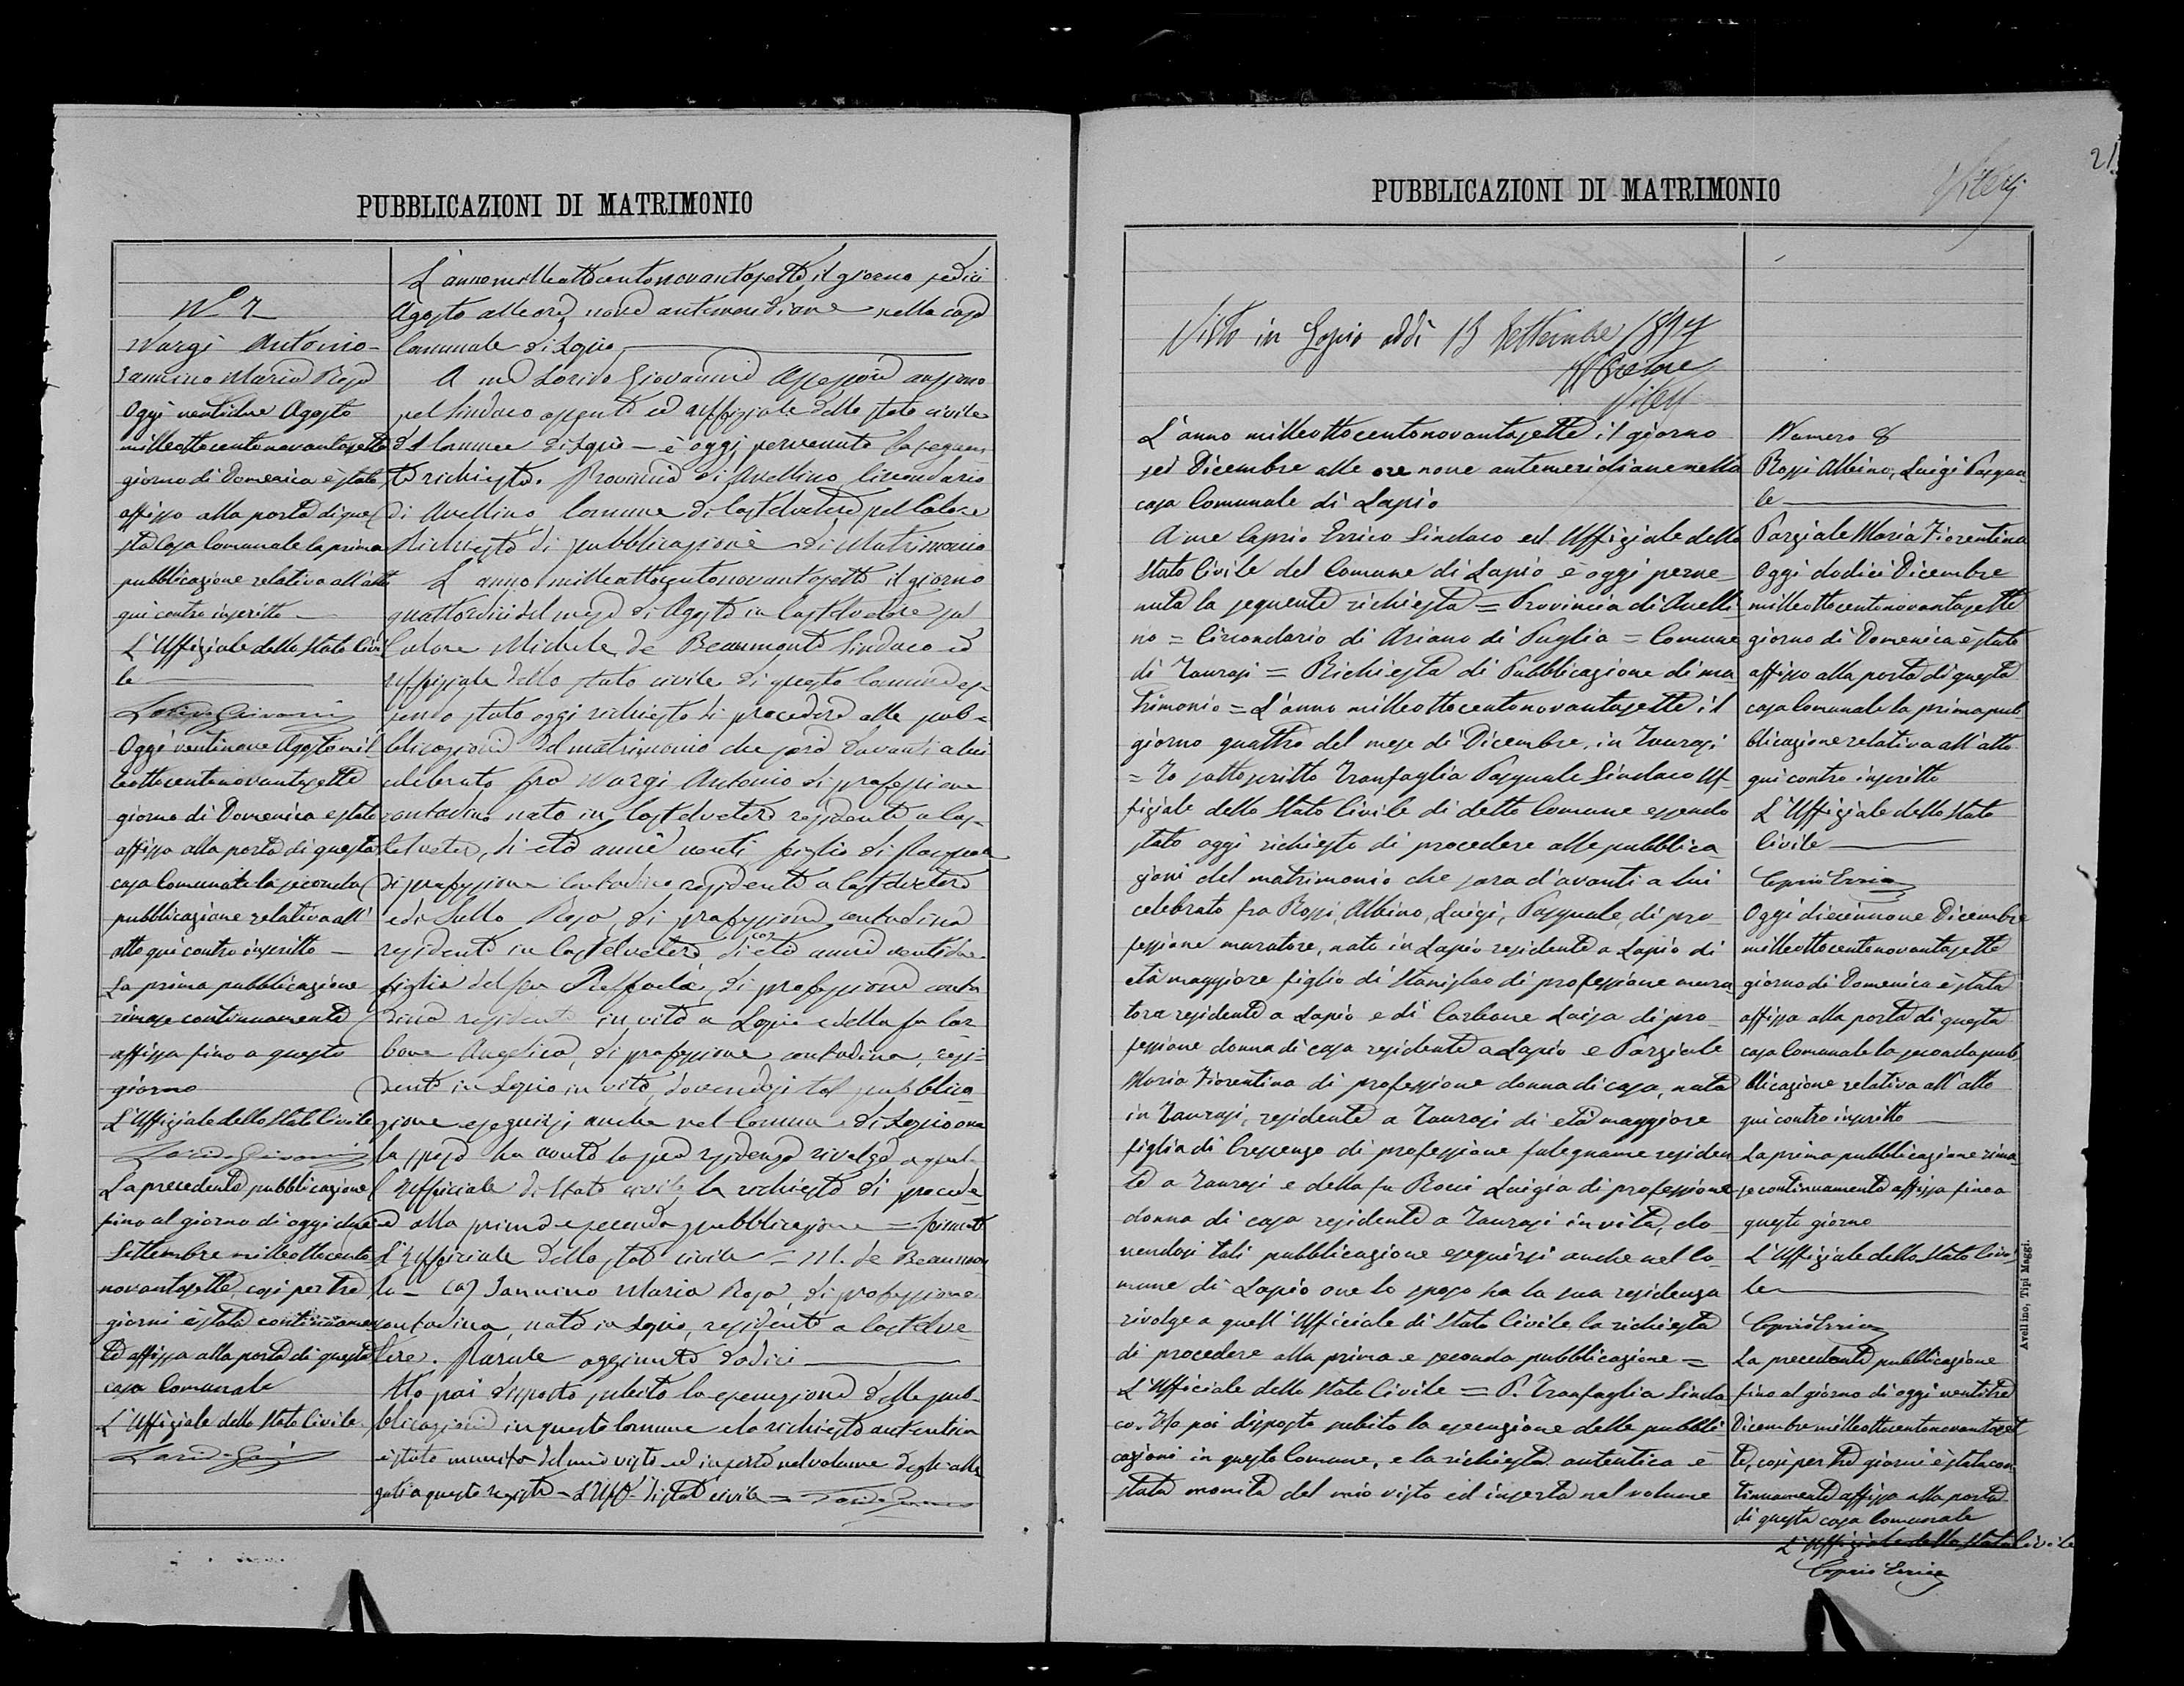 PUBBLICAZIONI DI MATRIMONIO
N° 7
Nargi Antonio
Iannino Maria Rosa
Oggi ventidue Agosto
milleottocentonovantasette
giorno di Domenica è stata
affissa alla porta di que
sta Casa Comunale la prima
pubblicazione relativa all'atto
qui contro inscritto
L'Uffiziale dello Stato Civi
le
Oggi ventinove Agosto mil
leottocentonovantasette
giorno di Domenica è stata
affissa alla porta di questa
casa Comunale la seconda
pubblicazione relativa all'
atto qui contro inscritto
La prima pubblicazione
rimase continuamente
affissa fino a questo
giorno
L'Uffiziale dello Stato Civile
La precedente pubblicazione
fino al giorno di oggi due
Settembre milleottocento
novantasette, così per tre
giorni è stata continuamen
te affissa alla porta di questa
casa Comunale
L'Uffiziale dello Stato Civile
L'anno milleottocentonovantasette, il giorno sedici
Agosto alle ore nove antimeridiane nella casa
Comunale di Lapio
A me Giovanni Assessore anziano
pel Sindaco assente ed uffiziale dello stato civile
di Lapio è oggi pervenuta la seguen
te richiesta. Provincia di Avellino Circondario
di Avellino Comune di Castelvetere pel Calore
Richiesta di pubblicazione di Matrimonio
L'anno milleottocentonovantasette il giorno
quattordici del mese di Agosto in Castelvetere sul
Calore Michele de Beaumont Sindaco ed
uffiziale dello stato civile di questo Comune es-
sendo stato oggi richiesto di procedere alle pub-
blicazioni del matrimonio che sarà davanti a lui
celebrato fra Nargi Antonio di professione
contadino nato in Castelvetere residente a Cas-
telvetere, di età anni venti figlio di
di professione contadino residente a Castelvetere
e di Rosa, di professione contadina
residente in Castelvetere (a) di età anni ventidue
figlia del fu Raffaele, di professione conta
dino residente in vita a Lapio e della fu Car
bone Angelica, di professione contadina, resi-
dente in Lapio in vita, dovendosi tal pubblica
zione eseguirsi anche nel Comune di Lapio ove
la sposa ha avuto la sua residenza rivolge a quel
l'Ufficiale di Stato civile la richiesta di procede
re alla prima e seconda pubblicazione = firmato
L'Uffiziale dello stato civile = M. de Beaumon
t (a) Iannino Maria Rosa, di professione
contadina, nata in Lapio, residente a Castelve
tere. Parole aggiunte dodici
Ho poi disposto subito la esecuzione delle pub-
blicazioni in questo Comune e la richiesta autentica
è stata munita del mio visto ed inserta nel volume degli alle
gati a questo registro = L'Uff. di stato civile =
PUBBLICAZIONI DI MATRIMONIO
21
Visto in Lapio addì 13 Settembre 1897
Il Pretore
L'anno milleottocentonovantasette il giorno
sei Dicembre alle ore nove antemeridiane nella
casa Comunale di Lapio
A me Caprio Errico Sindaco ed Uffiziale dello
stato Civile del Comune di Lapio è oggi perve
nuta la seguente richiesta = Provincia di Avelli
no = Circondario di Ariano di Puglia = Comune
di Taurasi = Richiesta di Pubblicazione di ma
trimonio = L'anno milleottocentonovantasette il
giorno quattro del mese di Dicembre, in Taurasi
= Io sottoscritto Tranfaglia Pasquale Sindaco Uf
fiziale dello Stato Civile di detto Comune essendo
stato oggi richiesto di procedere alle pubblica
zioni del matrimonio che sara d'avanti a lui
celebrato fra Rossi, Albino, Luigi, Pasquale, di pro
fessione muratore, nato in Lapio residente a Lapio di
età maggiore figlio di Stanislao di professione mura
tore residente a Lapio e di Carbone Luisa di pro
fessione donna di casa residente a Lapio e Parziale
Maria Fiorentina di professione donna di casa, nata
in Taurasi, residente a Taurasi di età maggiore
figlia di Crescenzo di professione falegname residen
te a Taurasi e della fu Rocci Luigia di professione
donna di casa residente a Taurasi in vita, do
vendosi tali pubblicazione eseguirsi anche nel Co
mune di Lapio ove lo sposo ha la sua residenza
rivolge a quell'Ufficiale di Stato Civile la richiesta
di procedere alla prima e seconda pubblicazione =
L'Ufficiale dello Stato Civile = P. Tranfaglia Sinda
co. Ho poi disposto subito la esecuzione delle pubbli
cazioni in questo Comune, e la richiesta autentica è
stata monita del mio visto ed inserta nel volume
Numero 8
Rossi Albino, Luigi Pasqua
le
Parziale Maria Fiorentina
Oggi dodici Dicembre
milleottocentonovantasette
giorno di Domenica è stata
affissa alla porta di questa
casa Comunale la prima pub
blicazione relativa all'atto
qui contro inscritto
L'Uffiziale dello Stato
Civile
Caprio Errico
Oggi diciannove Dicembre
milleottocentonovantasette
giorno di Domenica è stata
affissa alla porta di questa
casa Comunale la seconda pub
blicazione relativa all'atto
qui contro inscritto
La prima pubblicazione rima
se continuamente affissa fino a
questo giorno
L'Uffiziale dello Stato Civi
le
Caprio Errico
La precedente pubblicazione
fino al giorno di oggi ventitre
Dicembre milleottocentonovantaset
te, così per tre giorni è stata con
tinuamente affissa alla porta
di questa casa Comunale
L'Uffiziale dello Stato Civile
Caprio Errico
Avellino, Tipi Maggi.